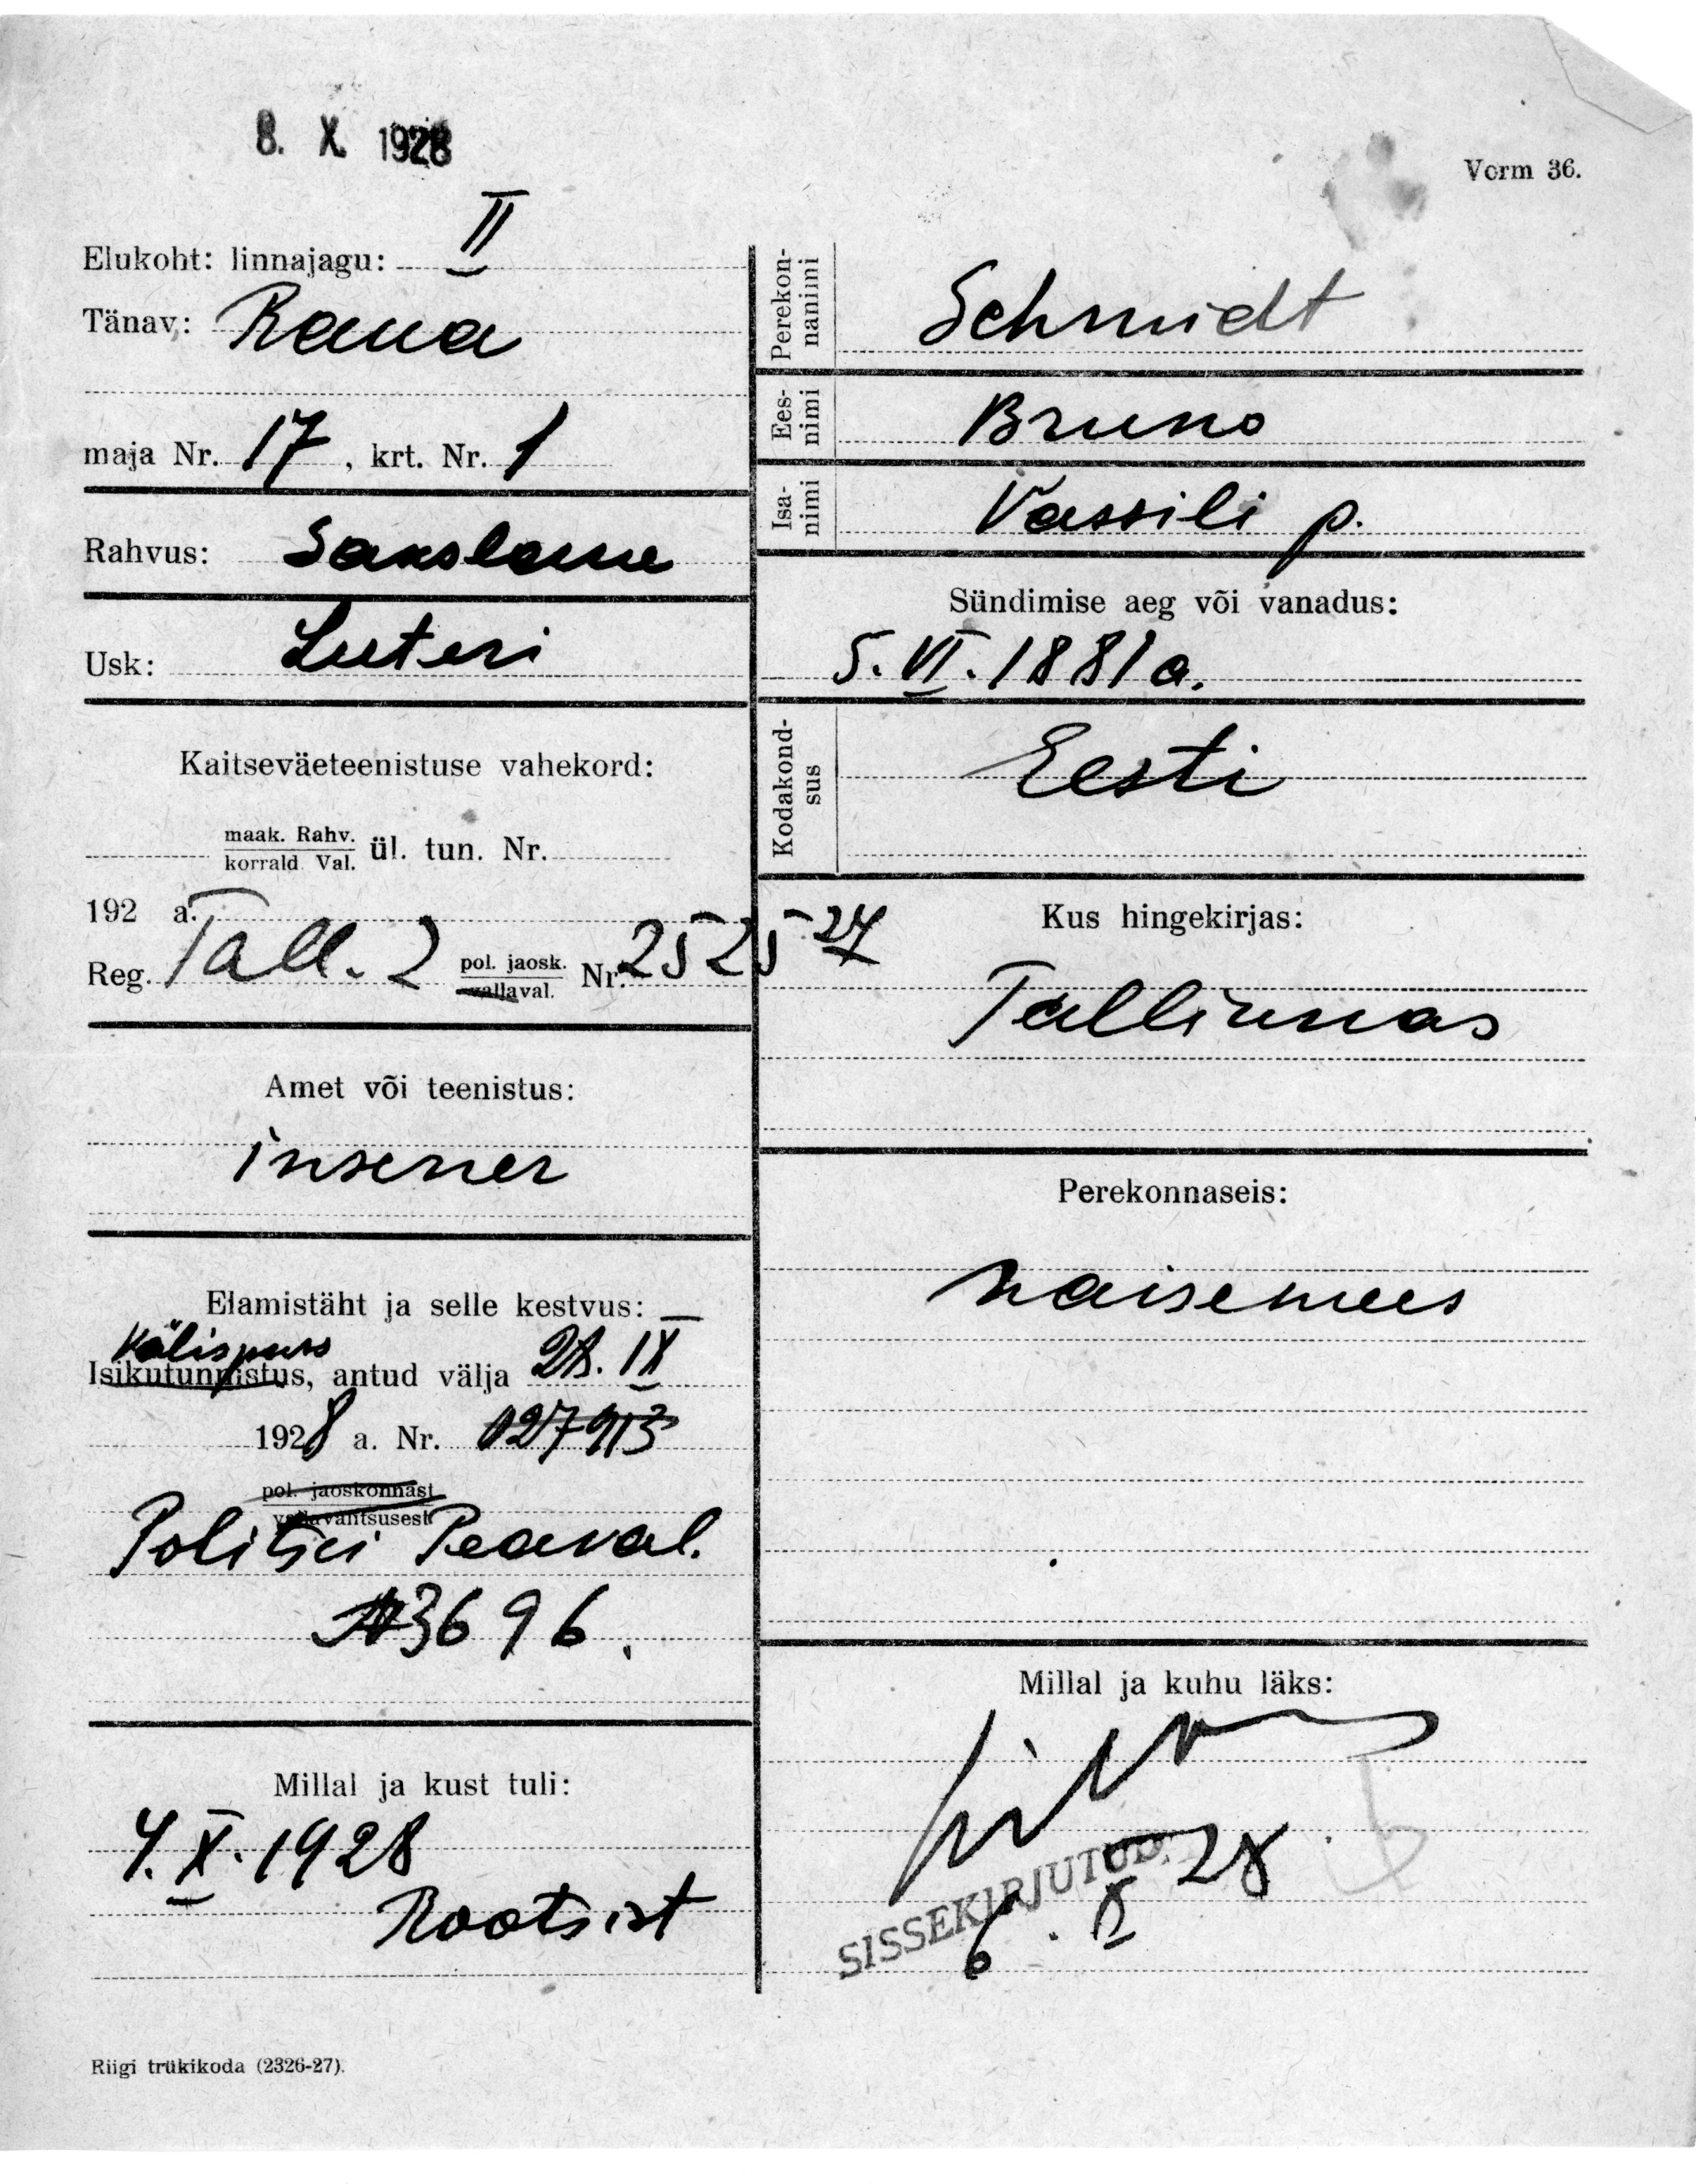 8. X. 1928
Vorm 36.
Elukoht: linnajagu: II
Tänav: Raua
maja Nr. 17, krt. Nr. 1
Rahvus: Sakslane
Usk: Luteri
Kaitseväeteenistuse vahekord:
maak. Rahv.
korrald. Val. ül. tun. Nr.
192 a.
Reg. Tall. 2 pol. jaosk. Nr. 2525 27
vallaval.
Amet või teenistus:
insener
Elamistäht ja selle kestvus: —
Välispass
Isikutunnistus, antud välja 28. IX
1928 a. Nr. 027913
pol. jaoskonnast
vallavalitsusest
Politsei Peaval.
3696.
Millal ja kust tuli:
4. X. 1928
Rootsist
Perekon-
nanimi
Schmidt
Ees-
nimi
Bruno
Isa-
nimi
Vassili p.
Sündimise aeg või vanadus:
5. VI. 1881 a.
Kodakond-
sus
Eesti
Kus hingekirjas:
Tallinnas
Perekonnaseis:
naisemees
Millal ja kuhu läks:
28
SISSEKIRJUTUD.
6. X
Riigi trükikoda (2326-27).